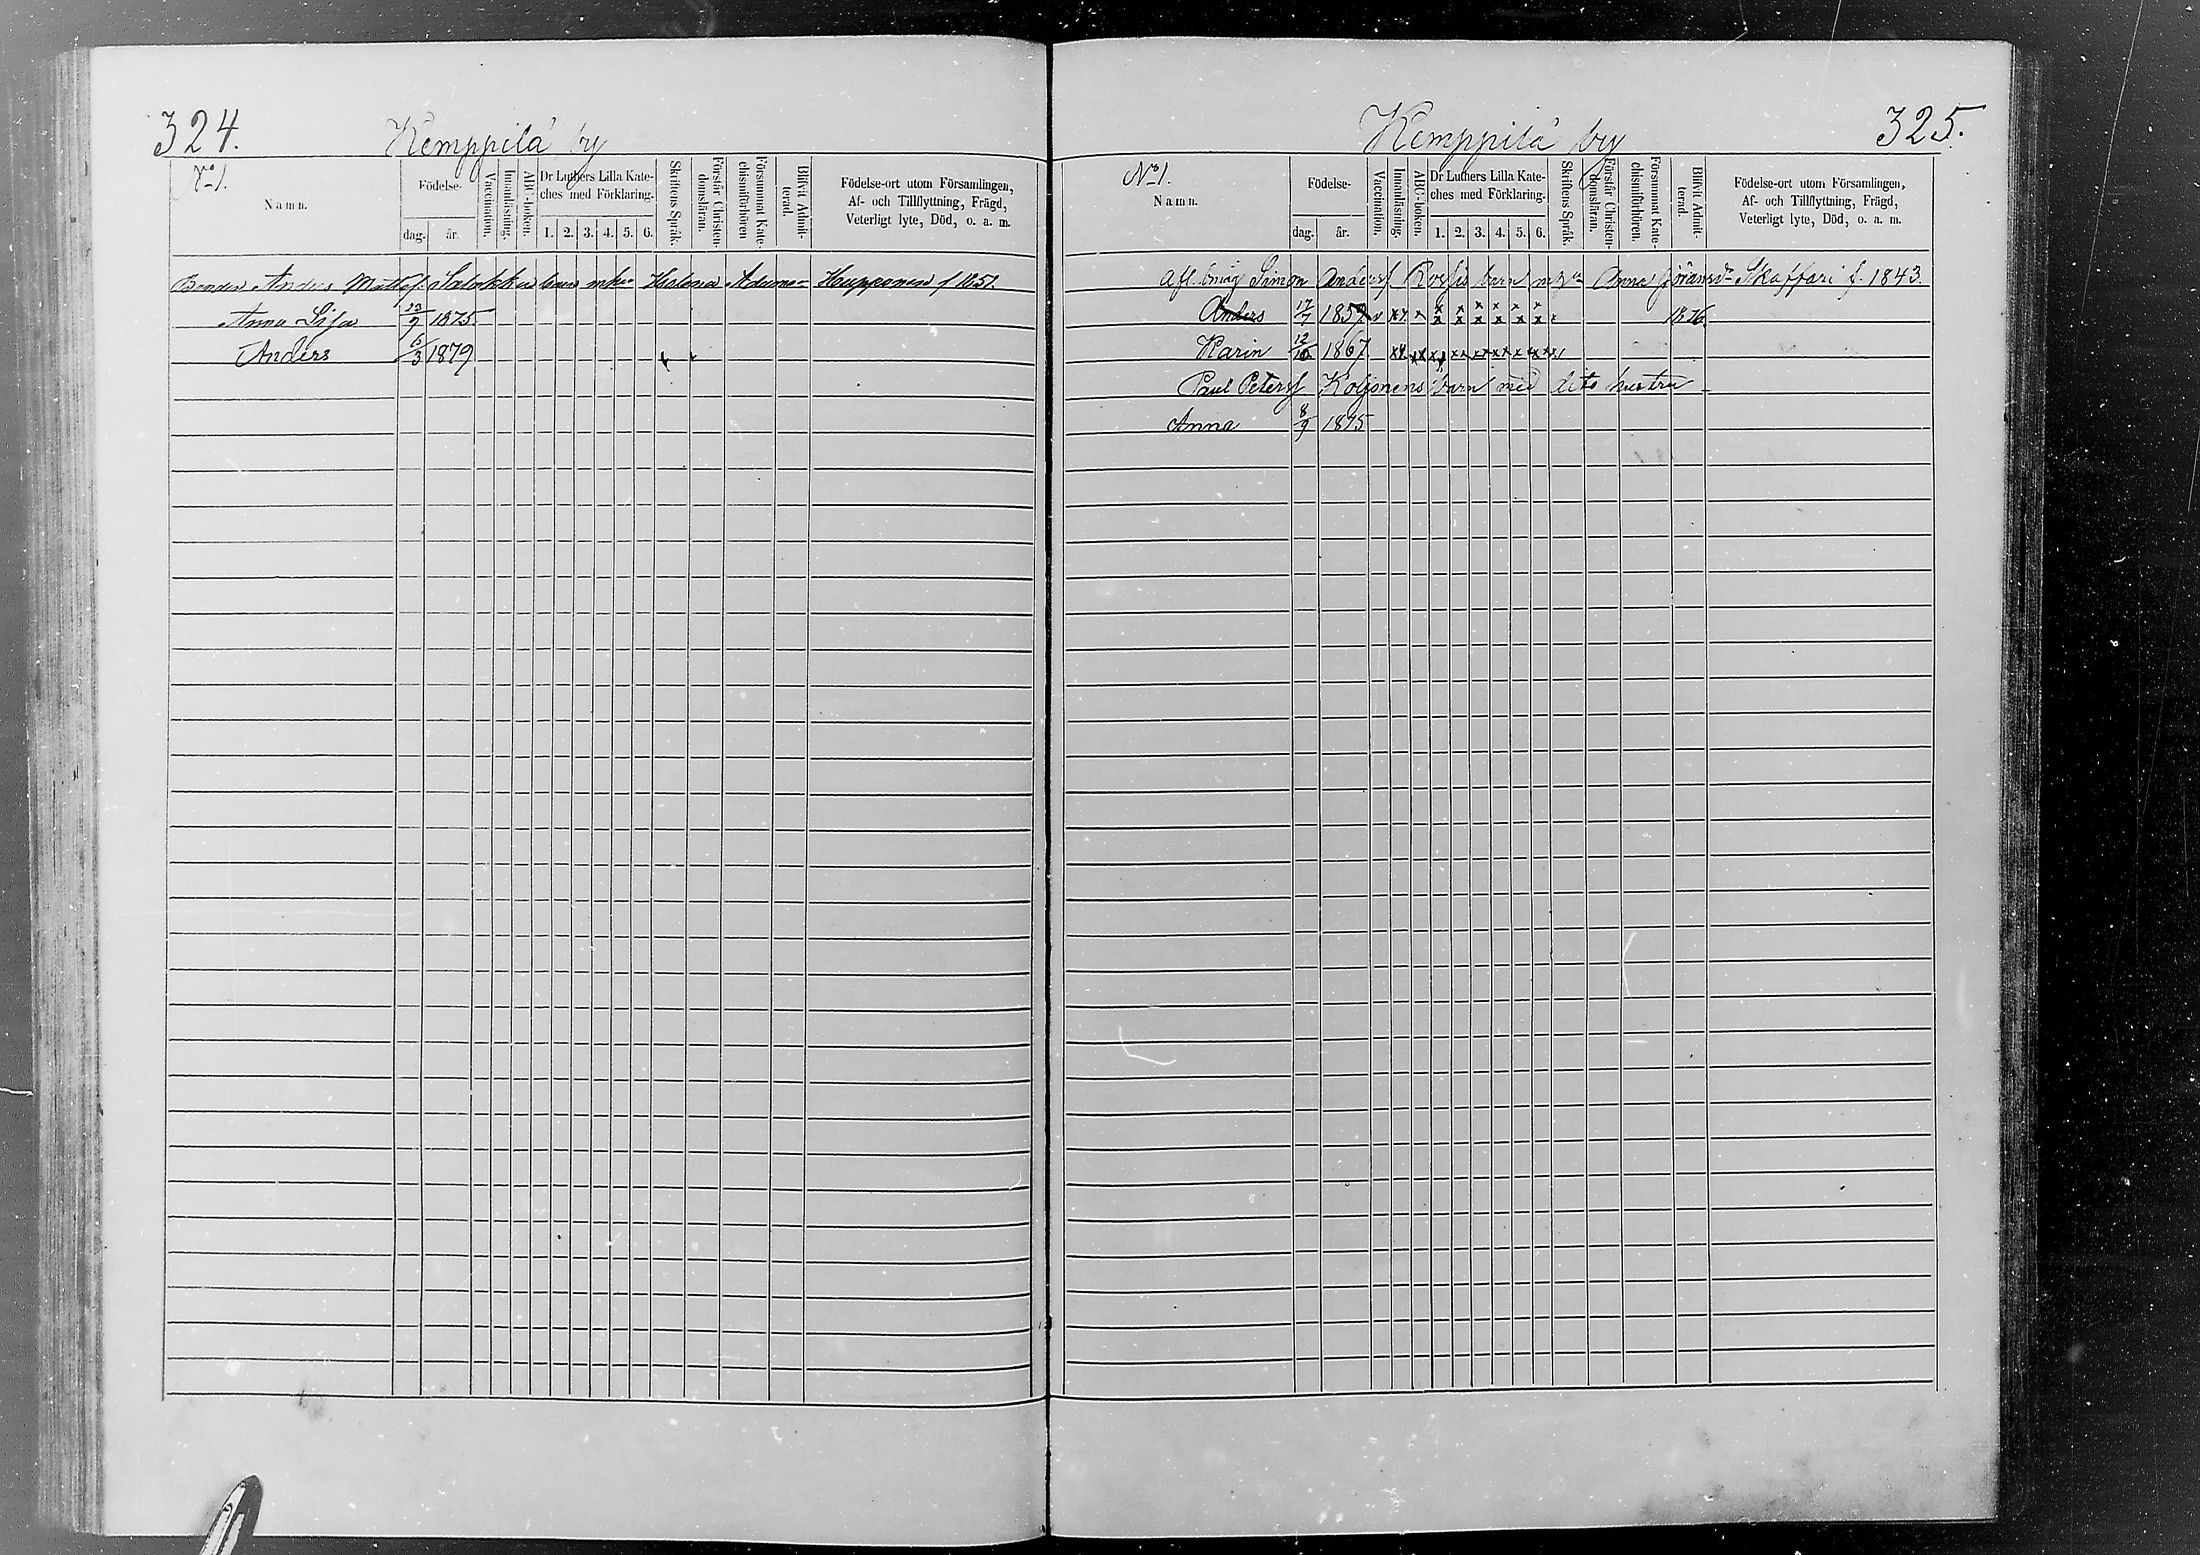 324.
Kemppilä by
No 1.
Namn.
Födelse-
dag.
år.
Vaccination.
Innanläsning.
ABC-boken.
Dr Luthers Lilla Kate-
ches med Förklaring.
1. 2. 3. 4. 5. 6.
Skriftens Språk.
Förstår Christen-
domsläran.
Försummat Kate-
chismiförhören
Blifvit Admit-
terad.
Födelse-ort utom Församlingen,
Af- och Tillflyttning, Frägd,
Veterligt lyte, Död, o. a. m.
Bonden Anders Mattsf. barn Helena Adams Hupponen f 1851.
Anna Lisa 9 1875
Anders 3 1879
Kemppilä by
325.
No 1.
Namn.
Födelse-
dag.
år.
Vaccination.
Innanläsning.
ABC-boken.
Dr Luthers Lilla Kate-
ches med Förklaring.
1. 2. 3. 4. 5. 6.
Skriftens Språk.
Förstår Christen-
domsläran.
Försummat Kate-
chismiförhören.
Blifvit Admit-
terad.
Födelse-ort utom Församlingen,
Af- och Tillflyttning, Frägd,
Veterligt lyte, Död, o. a. m.
Afl. Simon Andersf barn Anna Göransdr Skaffari f. 1843.
Anders 17/7 1859 v xx x x x x x x x x x x x x 1876.
Karin 12/10 1867 xx xx xx xx xx xx xx xx
Paul Petersf Koljonens barn med dito hustru
Anna 8/9 1875